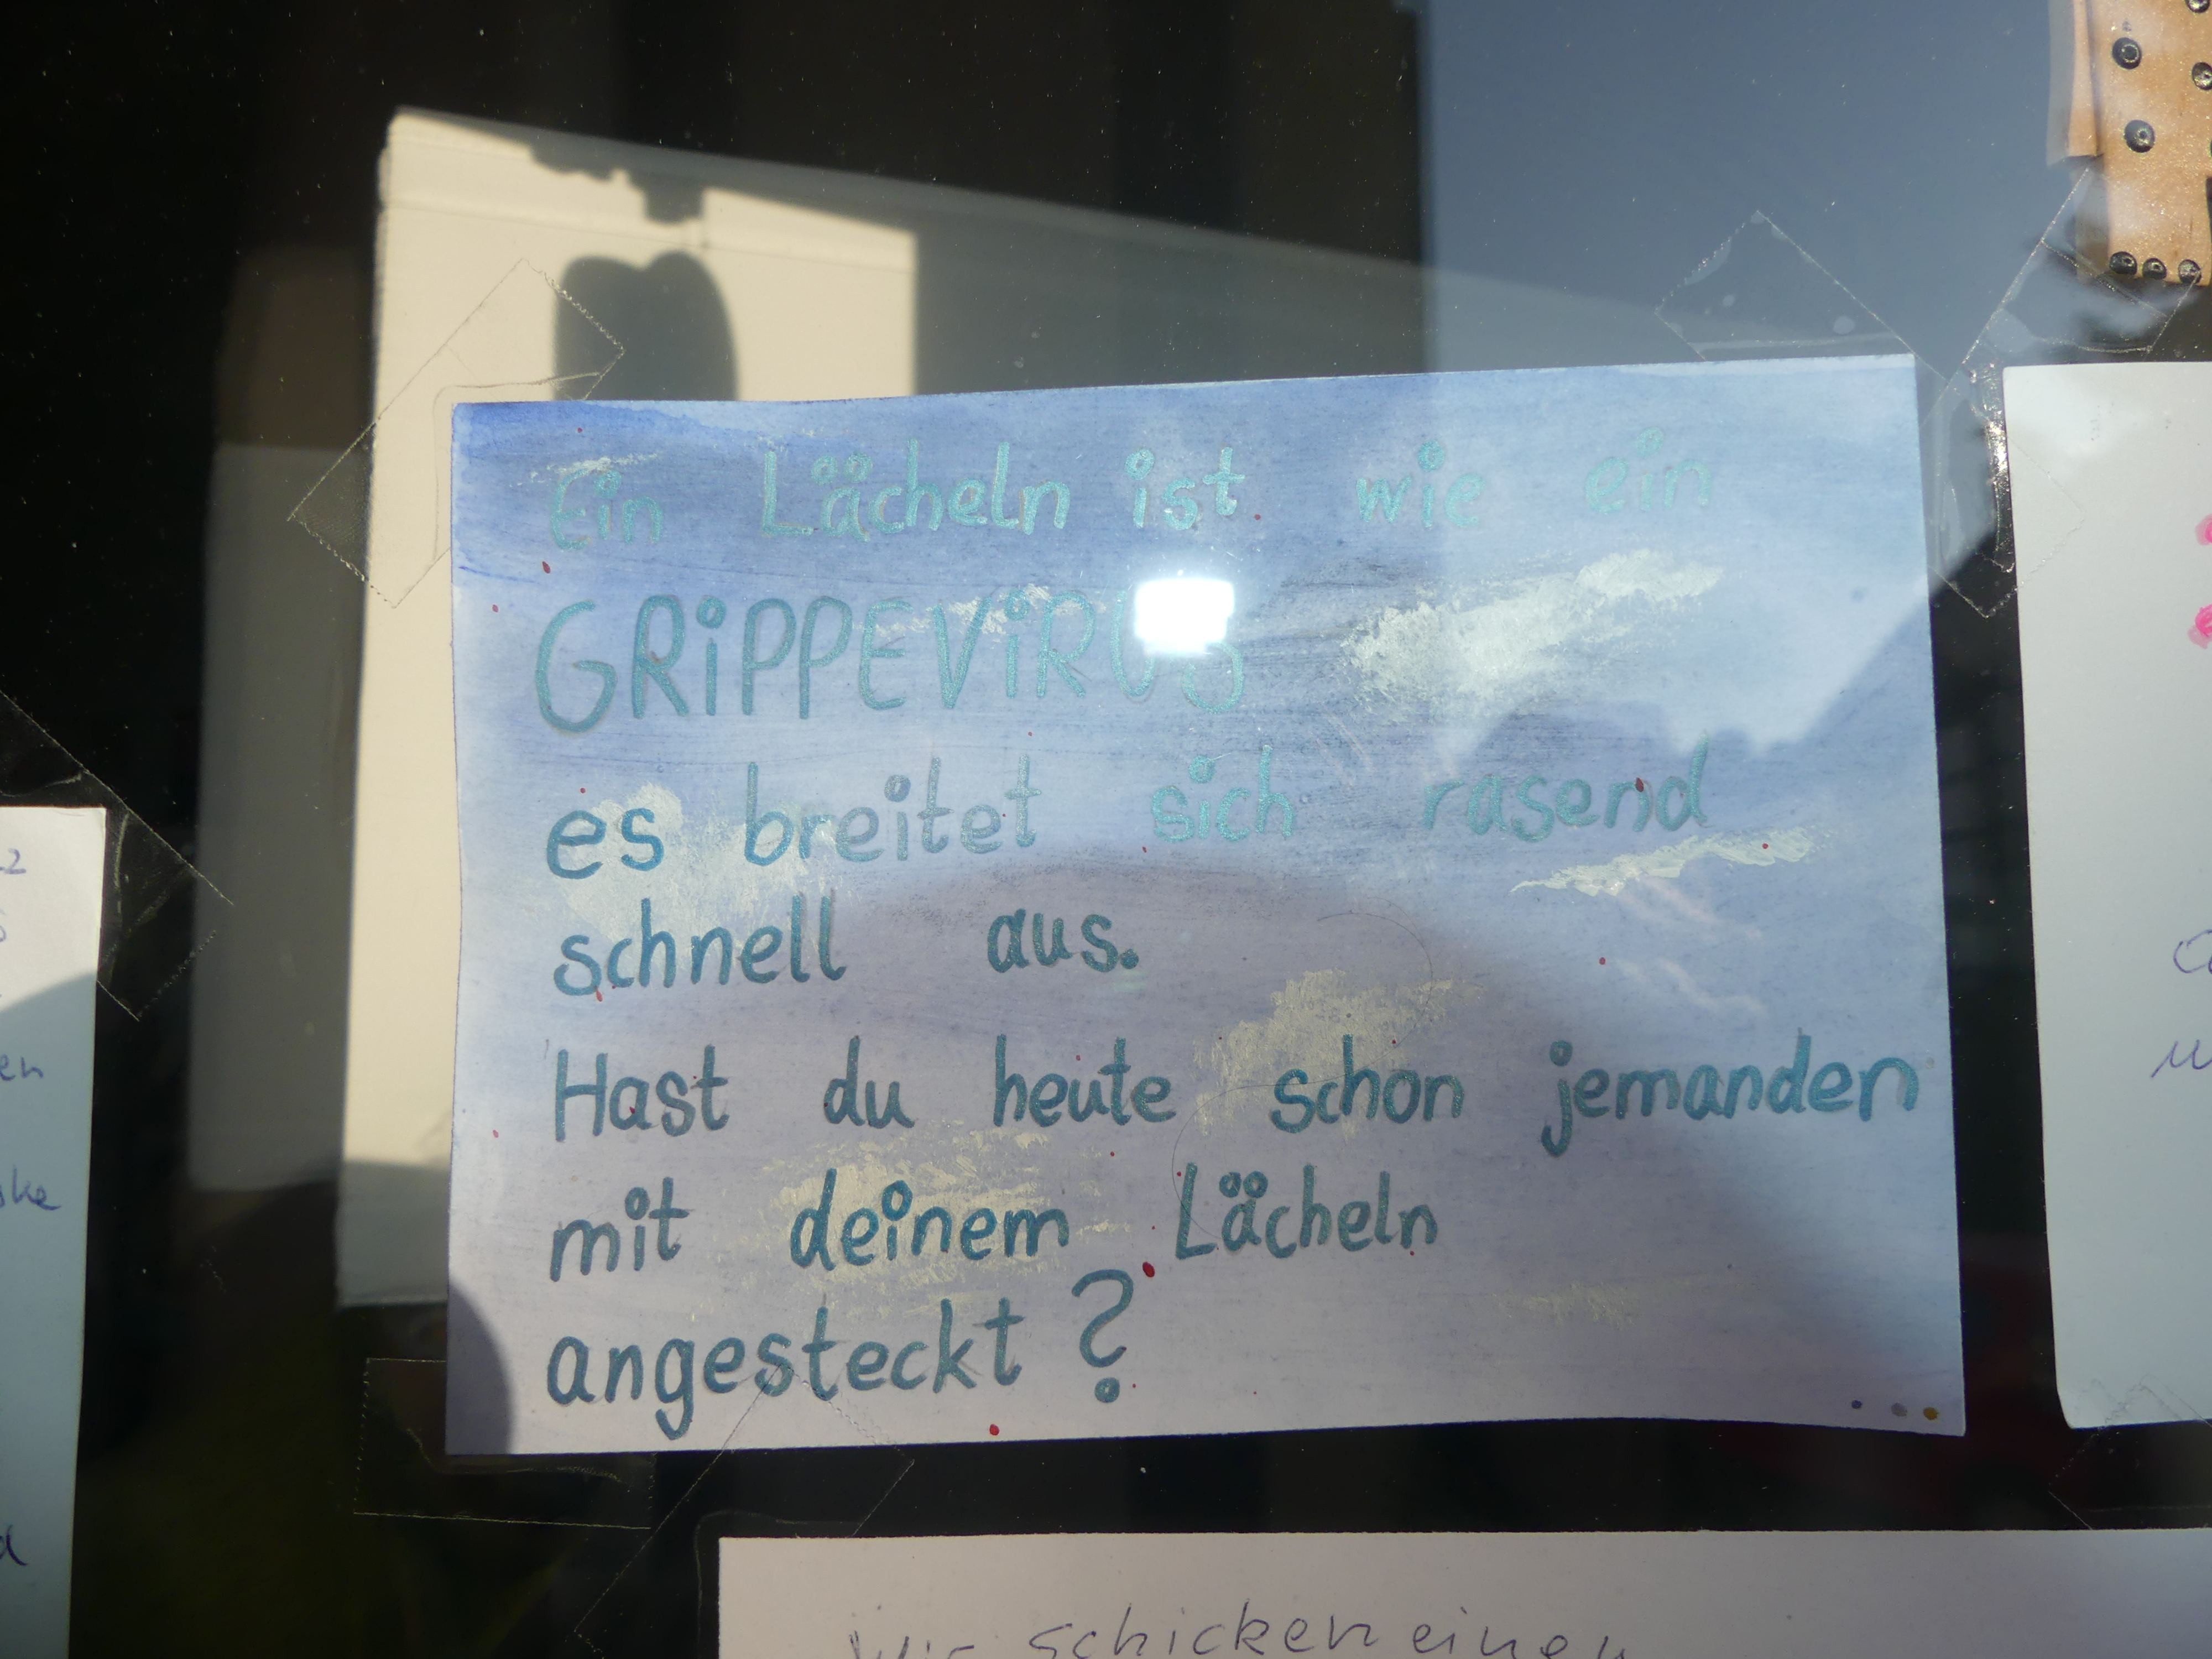 Ein Lächeln ist wie ein
GRiPPEViRUS
es breitet sich rasend
schnell aus.
Hast du heute schon jemanden
mit deinem Lächeln
angesteckt?
Wir schicken einen